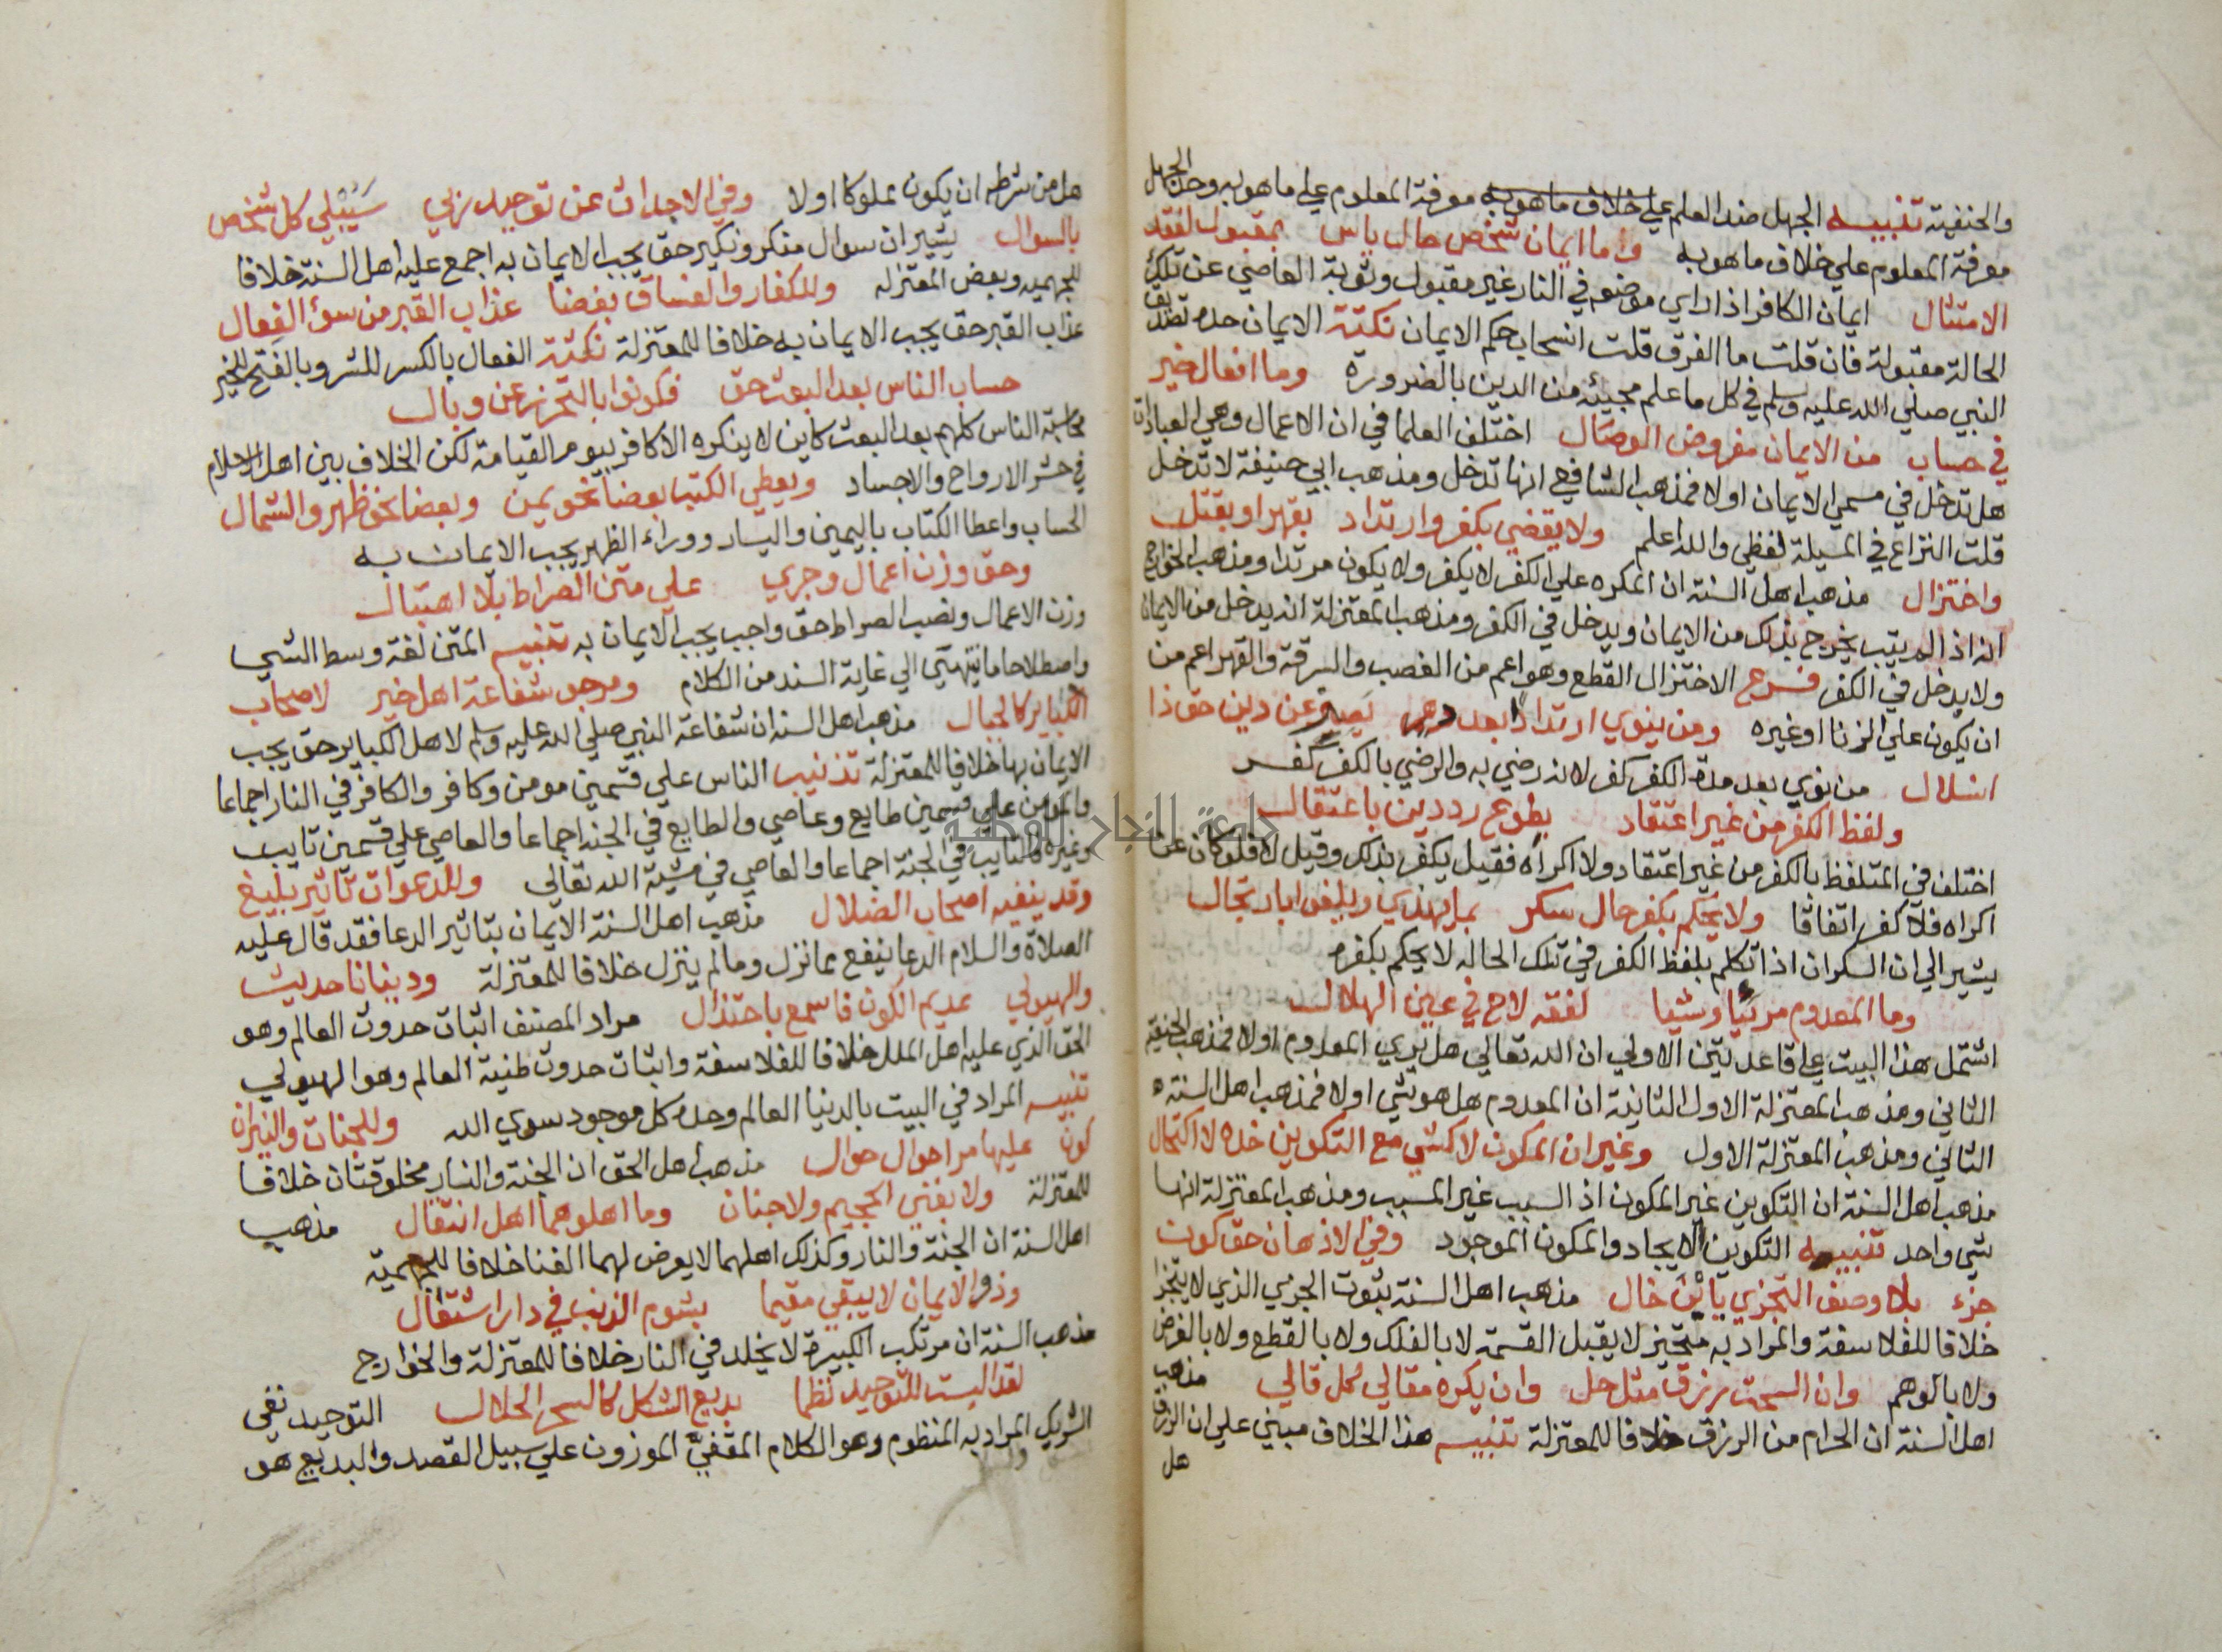 والحنفية تنبيه الجهل ضد العلم علي خلاف ما هو به معرفة المعلوم علي ما هو به وحد الجهل
معرفة المعلوم علي خلاف ما هو به وما ايمان شخص حال ياس بمقبول لفقد
الامتثال ايمان الكافر اذا راي موضعه في النار غير مقبول وتوبة العاصي عن تلك
الحالة مقبولة فان قلت ما الفرق قلت انسحاب حكم الايمان نكتة الايمان حده تصديق
النبي صلي الله عليه وسلم في كل ما علم مجيئه من الدين بالضرورة وما افعال خير
في حساب من الايمان مفروض الوصال اختلف العلما في ان الاعمال وهي العبادات
هل تدخل في مسمي الايمان اولا فمذهب الشافعي انها تدخل ومذهب ابي حنيفة لا تدخل
قلت النزاع في المسيلة لفظي والله اعلم ولا يقضي بكفر وارتداد بقهر او بقتل
واختزال مذهب اهل السنة ان المكره علي الكفر لا يكفر ولا يكون مرتدا ومذهب الخوارج
انه اذا لم يتب يخرج بذلك من الايمان ويدخل في الكفر ومذهب المعتزلة انه يدخل من الايمان
ولا يدخل في الكفر فرع الاختزال القطع وهو اعم من الغصب والسرقة والقهر اعم من
ان يكون علي الزنا او غيره ومن ينوي ارتدادا بعد دهر يصير عن دين حق ذا
انسلال من نوي بعد مدة الكفر كفر لانه رضي به والرضي بالكفر كفر
ولفظ الكفر من غير اعتقاد بطوع رد دين باعتقال
اختلف في المتلفظ بالكفر من غير اعتقاد ولا اكراه فقيل يكفر بذلك وقيل لا فلو كان عن
اكراه فلا كفر اتفاقا ولا يحكم بكفر حال سكر بما يهذي ويلغو بارتجال
يشير الي ان السكران اذا تكلم بلفظ الكفر في تلك الحاله لا يحكم بكفره
وما المعدوم مرئيا وشيا لفقه لاح في عين الهلال
اشتمل هذا البيت علي قاعدتين الاولي ان الله تعالي هل يري المعدوم اولا فمذهب الحنفية
الثاني ومذهب المعتزلة الاول الثانية ان المعدوم هل هو شي اولا فمذهب اهل السنة
الثاني ومذهب المعتزلة الاول وغيران المكون لا كشي مع التكوين خذه لاكتحال
مذهب اهل السنة ان التكوين غير المكون اذ السبب غير المسبب ومذهب المعتزلة انهما
شي واحد تنبيه التكوين الايجاد والمكون الموجود وفي الاذهان حق كون
جزء بلا وصف التجزي يا ابن خال مذهب اهل السنة بثبوت الجزء الذي لا يتجزا
خلافا للفلاسفة والمراد به متحيز لا يقبل القسمة لا بالفلك ولا بالقطع ولا بالفرض
ولا بالوهم وان السحت رزق مثل حل وان يكره مقالي كل قالي مذهب
اهل السنة ان الحرام من الرزق خلافا للمعتزلة تنبيه هذا الخلاف مبني علي ان الرزق
هل
هل من شرطه ان يكون مملوكا اولا وفي الاجداث عن توحيد ربي سيبلي كل شخص
بالسوال يشير ان سوال منكر ونكير حق يجب الايمان به اجمع عليه اهل السنة خلافا
للجهميه وبعض المعتزله وللكفار والفساق بغضا عذاب القبر من سوء الفعال
عذاب القبر حق يجب الايمان به خلافا للمعتزلة نكتة الفعال بالكسر للشر وبالفتح للخير
حساب الناس بعد البعث حق فكونوا بالتحرز عن وبال
محاسبة الناس كلهم بعد البعث كاين لا ينكره الا كافر بيوم القيامة لكن الخلاف بين اهل الاسلام
في حشر الارواح والاجساد ويعطي الكتب بعضا نحو يمن وبعضا نحو ظهر والشمال
الحساب واعطا الكتاب باليمين واليسار ووراء الظهر يجب الايمان به
وحق وزن اعمال وجري علي متن الصراط بلا اهتبال
وزن الاعمال ونصب الصراط حق واجب يجب الايمان به تنبيه المتن لغة وسط الشي
واصطلاحا ما ينتهي الي غاية السند من الكلام ومرجو شفاعة اهل خير لاصحاب
الكباير كالجبال مذهب اهل السنة ان شفاعة النبي صلي الله عليه وسلم لاهل الكباير حق يجب
الايمان بها خلافا للمعتزلة تذنيب الناس علي قسمين مومن وكافر والكافر في النار اجماعا
والمومن علي قسمين طايع وعاصي والطايع في الجنة اجماعا والعاصي علي قسمين تايب
وغيره فالتايب في الجنة اجماعا والعاصي في مشية الله تعالي وللدعوات تاثير بليغ
وقد ينفيه اصحاب الضلال مذهب اهل السنة الايمان بتاثير الدعا فقد قال عليه
الصلاة والسلام الدعا ينفع مما نزل ومما لم ينزل خلافا للمعتزلة ودنيانا حديث
والهيولي عديم الكون فاسمع باحتذال مراد المصنف اثبات حدوث العالم وهو
الحق الذي عليه اهل الملل خلافا للفلاسفة واثبات حدوث طنية العالم وهو الهيولي
تنبيه المراد في البيت بالدنيا العالم وحده كل موجود سوي الله وللجنات والنيران
كون عليها مر احوال حوال مذهب اهل الحق ان الجنة والنار مخلوقتان خلافا
للمعتزلة ولا يفني الجحيم ولا جنان وما اهلوهما اهل انتقال مذهب
اهل السنة ان الجنة والنار وكذلك اهلهما لا يعرض لهما الفنا خلافا للجهمية
وذو الايمان لا يبقي مقيما بشوم الذنب في دار اشتعال
مذهب السنة ان مرتكب الكبيرة لا يخلد في النار خلافا للمعتزلة والخوارج
لقد البست للتوحيد نظما بديع الشكل كالسحر الحلال التوحيد نفي
الشريك المراد به المنظوم وهو الكلام المقفي الموزون علي سبيل القصد والبديع هو
جامعة النجاح الوطنية